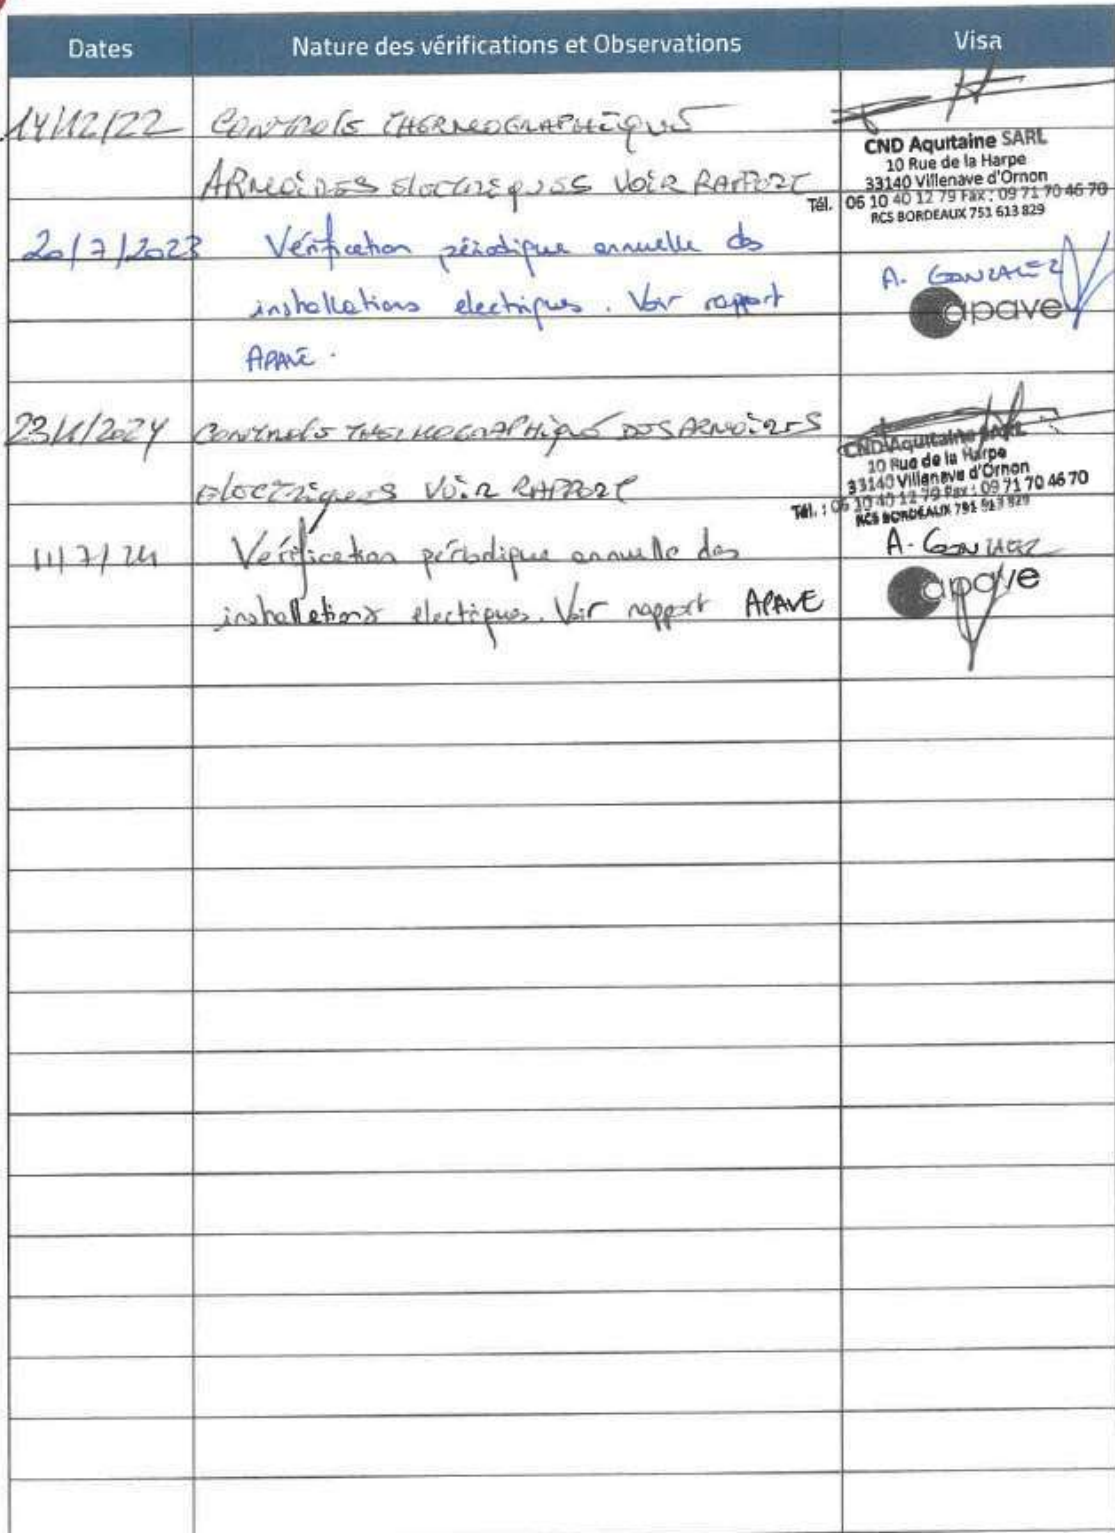 Dates Nature des vérifications et Observations Visa
14/12/22 CONTROLE THERMOGRAPHIQUE
ARMOIRES ELECTRIQUES VOIR RAPPORT
CND Aquitaine SARL
10 Rue de la Harpe
33140 Villenave d'Ornon
Tél. 06 10 40 12 79 Fax : 09 71 70 46 70
RCS BORDEAUX 751 613 829
20/7/2023 Vérification périodique annuelle des
installations electriques. Voir rapport
APAVE.
A. GONZALEZ
apave
23/1/2024 CONTROLE THERMOGRAPHIQUE DES ARMOIRES
ELECTRIQUES VOIR RAPPORT
CND Aquitaine SARL
10 Rue de la Harpe
33140 Villenave d'Ornon
Tél. : 06 10 40 12 79 Fax : 09 71 70 46 70
RCS BORDEAUX
11/7/24 Vérification périodique annuelle des
installations electriques. Voir rapport APAVE
A. GONZALEZ
apave